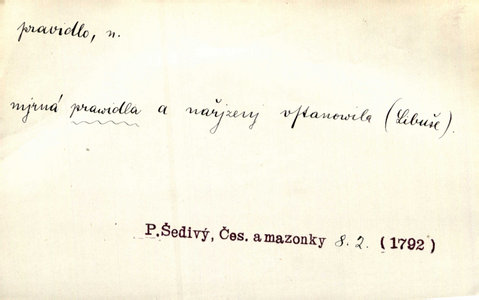 pravidlo, n.
mjrná prawidla a nařjzenj vstanowila (Libuše).
P.Šedivý, Čes. amazonky 8. 2. (1792)